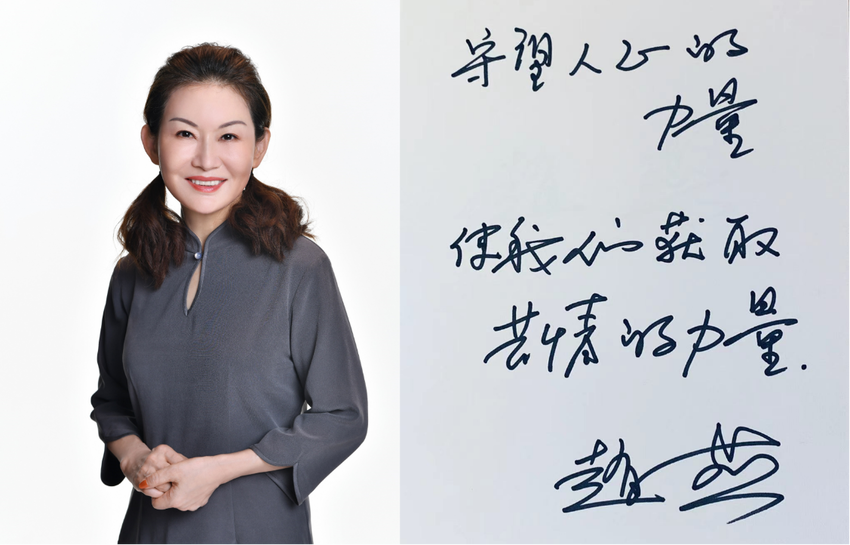 守望人心的
力量
使我们获取
共情的力量.